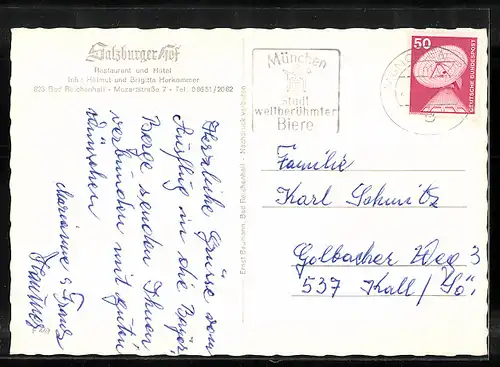 Salzburger Hof
Restaurant und Hotel
Inh.: Helmut und Brigitta Herkommer
823 Bad Reichenhall - Mozartstraße 7 - Tel. 08651/2062
Herzliche Grüsse vom
Ausflug in die Bayer.
Berge senden Ihnen
verbunden mit guten
Wünschen
Marianne u. Franz
Ernst Baumann, Bad Reichenhall - Nachdruck verboten
München
Stadt
weltberühmter
Biere
50
DEUTSCHE BUNDESPOST
Familie
Karl Schmitz
Golbacher Weg 3
537 Kall/